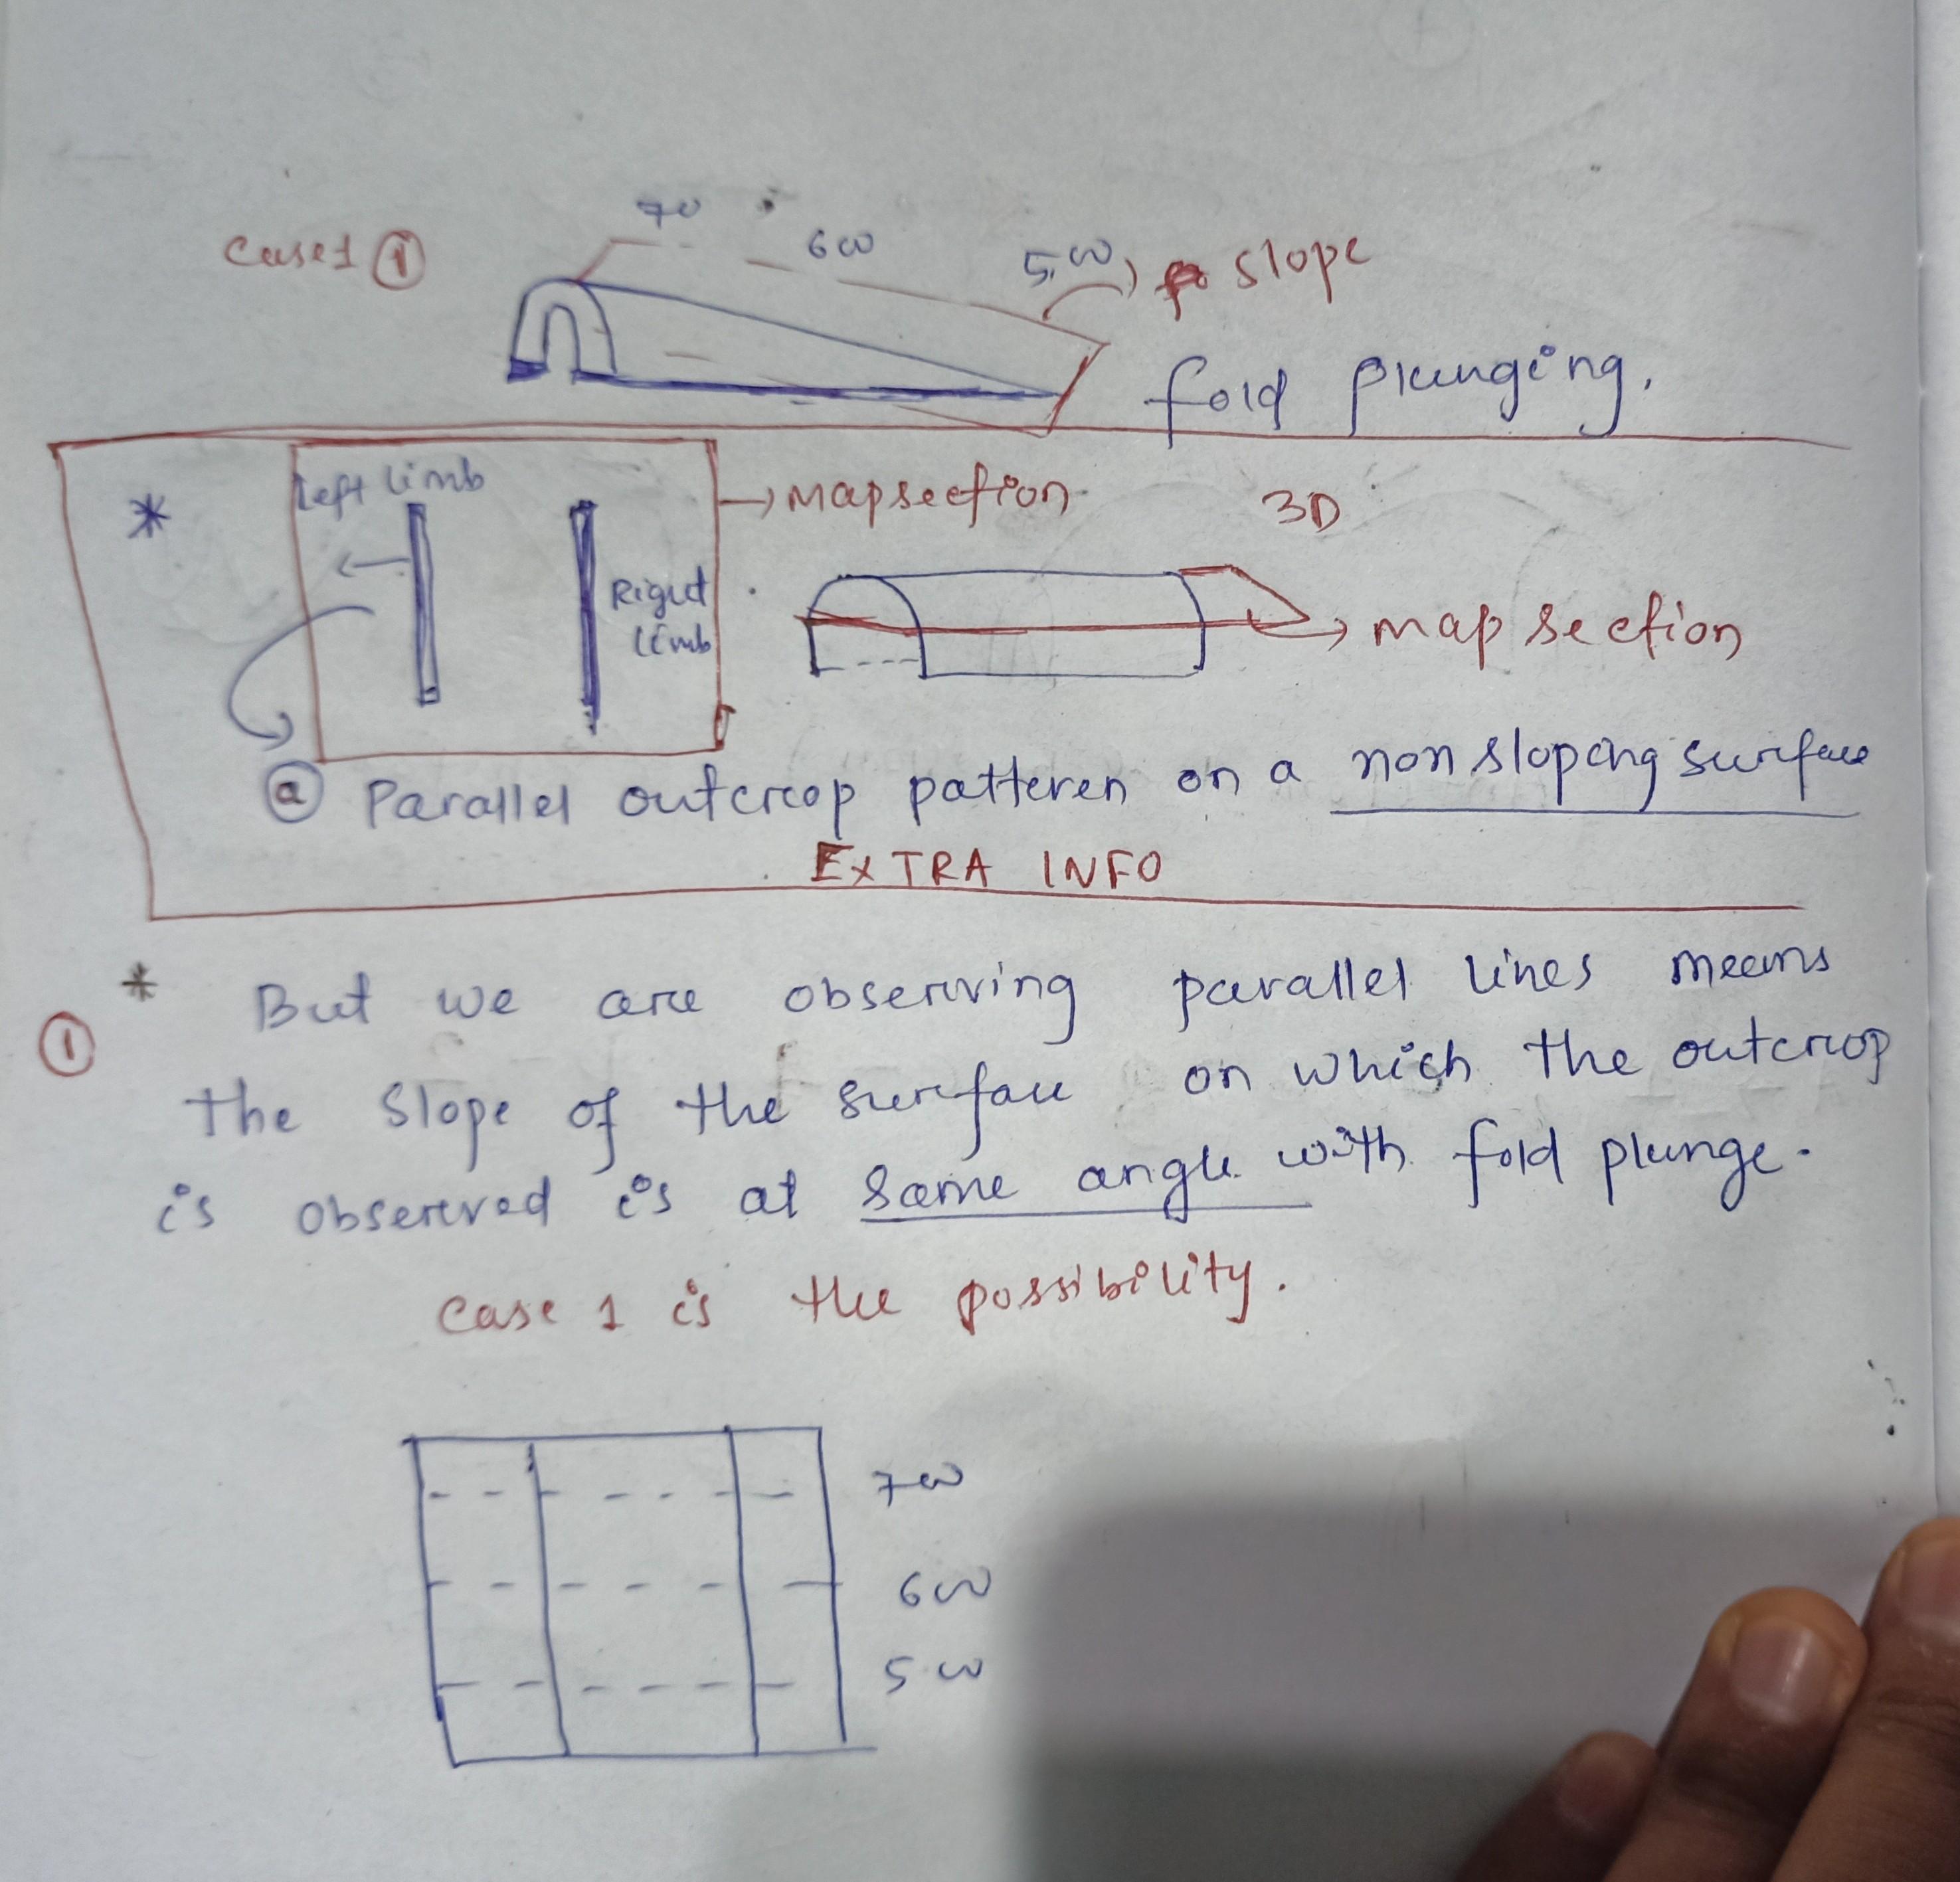 Case 1 ①
70
600
500
slope
fold plunging.
*
Left limb
→ Map section
3D
Right
limb
→ map section
ⓐ Parallel outcrop patteren on a non sloping surface
EXTRA INFO
* But we are observing parallel lines means
①
the slope of the surface on which the outcrop
is observed is at same angle with fold plunge.
Case 1 is the possibility.
700
600
500